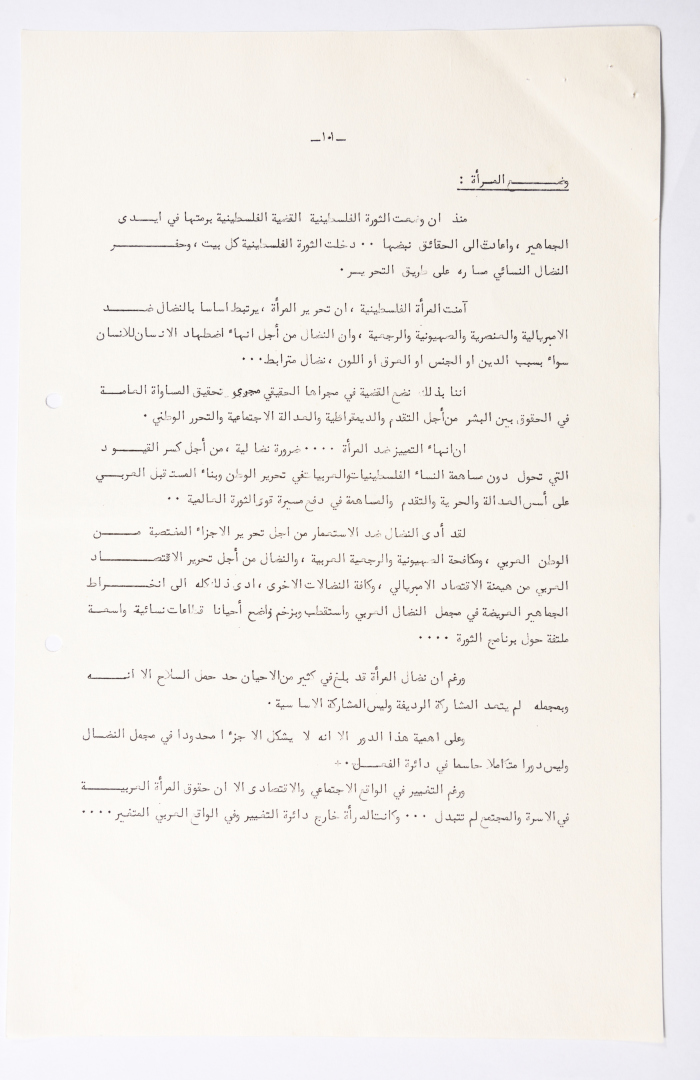 ـ١٠١ـ
وضع المرأة :
منذ ان وضعت الثورة الفلسطينية القضية الفلسطينية برمتها في أيدى
الجماهير ، واعادت الى الحقائق نبضها ٠٠ دخلت الثورة الفلسطينية كل بيت ، وحفر
النضال النسائي مساره على طريق التحرير ٠
آمنت المرأة الفلسطينية ، ان تحرير المرأة ، يرتبط اساسا بالنضال ضد
الامبريالية والعنصرية والصهيونية والرجعية ، وان النضال من أجل انهاء اضطهاد الانسان للانسان
سواء بسبب الدين او الجنس او العرق او اللون ، نضال مترابط ٠٠٠
اننا بذلك نضع القضية في مجراها الحقيقي مجرى تحقيق المساواة العامة
في الحقوق بين البشر من أجل التقدم والديمقراطية والعدالة الاجتماعية والتحرر الوطني ٠
ان انهاء التمييز ضد المرأة ٠٠٠٠ ضرورة نضالية ، من أجل كسر القيود
التي تحول دون مساهمة النساء الفلسطينيات والعربيات في تحرير الوطن وبناء المستقبل العربي
على أسس العدالة والحرية والتقدم والمساهمة في دفع مسيرة قوى الثورة العالمية ٠٠
لقد أدى النضال ضد الاستعمار من اجل تحرير الاجزاء المغتصبة من
الوطن العربي ، ومكافحة الصهيونية والرجعية العربية ، والنضال من أجل تحرير الاقتصاد
العربي من هيمنة الاقتصاد الامبريالي ، وكافة النضالات الاخرى ، ادى ذلك كله الى انخراط
الجماهير العريضة في مجمل النضال العربي واستقطب وبزخم واضح أحيانا قطاعات نسائية واسعة
ملتفة حول برنامج الثورة ٠٠٠٠
ورغم ان نضال المرأة قد بلغ في كثير من الاحيان حد حمل السلاح الا انه
وبمجمله لم يتعد المشاركة الرديفة وليس المشاركة الاساسية ٠
وعلى اهمية هذا الدور الا انه لا يشكل الا جزءا محدودا في مجمل النضال
وليس دورا متكاملا حاسما في دائرة الفعل ٠٠
ورغم التغيير في الواقع الاجتماعي والاقتصادى الا ان حقوق المرأة العربية
في الاسرة والمجتمع لم تتبدل ٠٠٠ وكانت المرأة خارج دائرة التغيير وفي الواقع العربي المتغير ٠٠٠٠